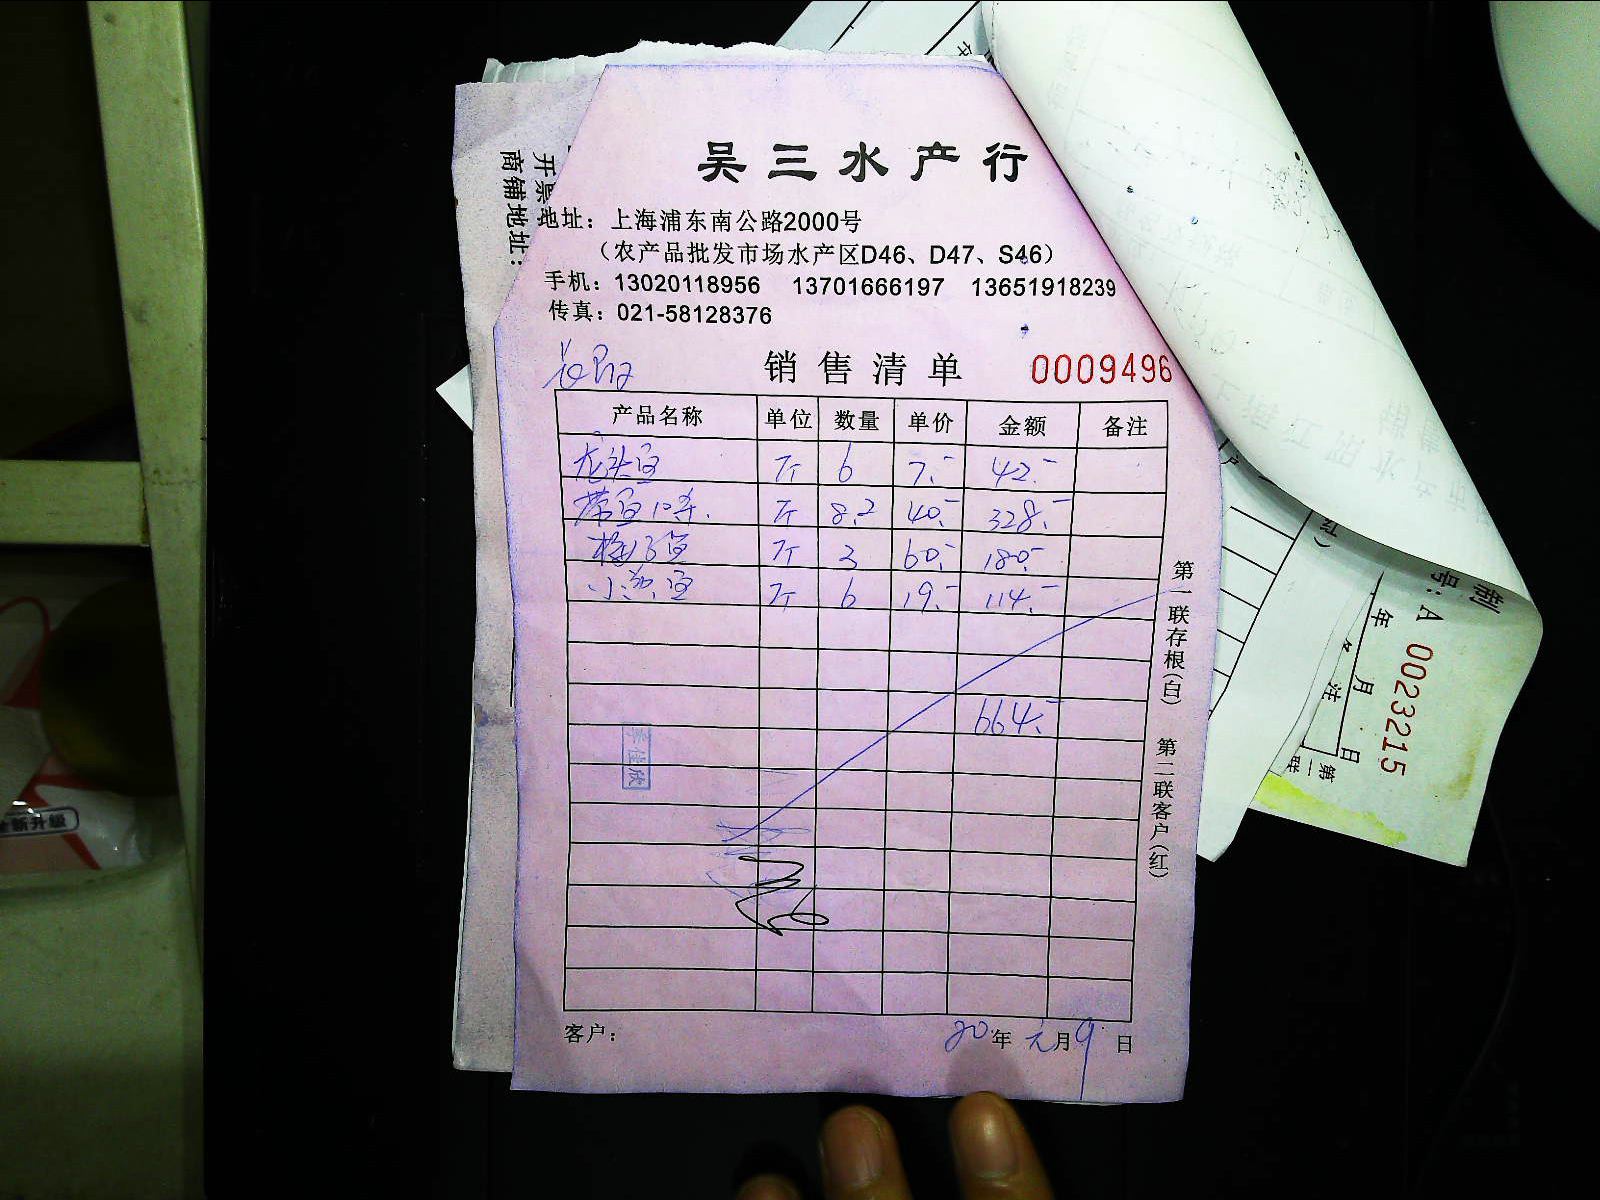 吴三水产行
地址：上海浦东南公路2000号
（农产品批发市场水产区D46、D47、S46）
手机：13020118956 13701666197 13651918239
传真：021-58128376
销售清单 0009496
产品名称 单位 数量 单价 金额 备注
龙头鱼 斤 6 7.- 42.-
带鱼10条. 斤 8.2 40.- 328.-
梅子鱼 斤 3 60.- 180.-
小黄鱼 斤 6 19.- 114.-
664.-
李佳欣
第一联存根（白） 第二联客户（红）
客户： 20年元月9日
开票
商铺地址：
制
号：A 0023215
年 月 日
注
第一联